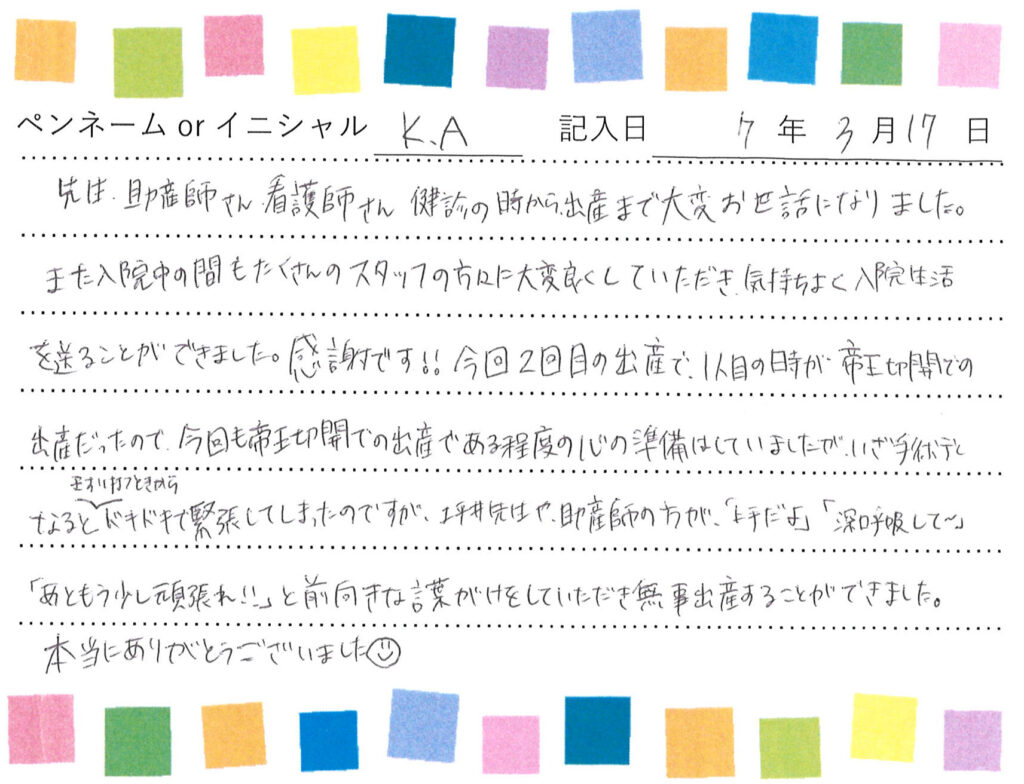 ペンネーム or イニシャル K.A 記入日 7 年 3 月 17 日
先生.助産師さん.看護師さん 健診の時から、出産まで大変お世話になりました。
また入院中の間もたくさんのスタッフの方々に大変良くしていただき、気持ちよく入院生活
を送ることができました。感謝です!! 今回2回目の出産で、1人目の時が帝王切開での
出産だったので、今回も帝王切開での出産である程度の心の準備はしていましたが、いざ手術と
ます打つときから
なるとドキドキで緊張してしまったのですが、坪井先生や、助産師の方が、「上手だよ」「深呼吸して〜」
「あともう少し頑張れ!!」と前向きな言葉がけをしていただき無事出産することができました。
本当にありがとうございました